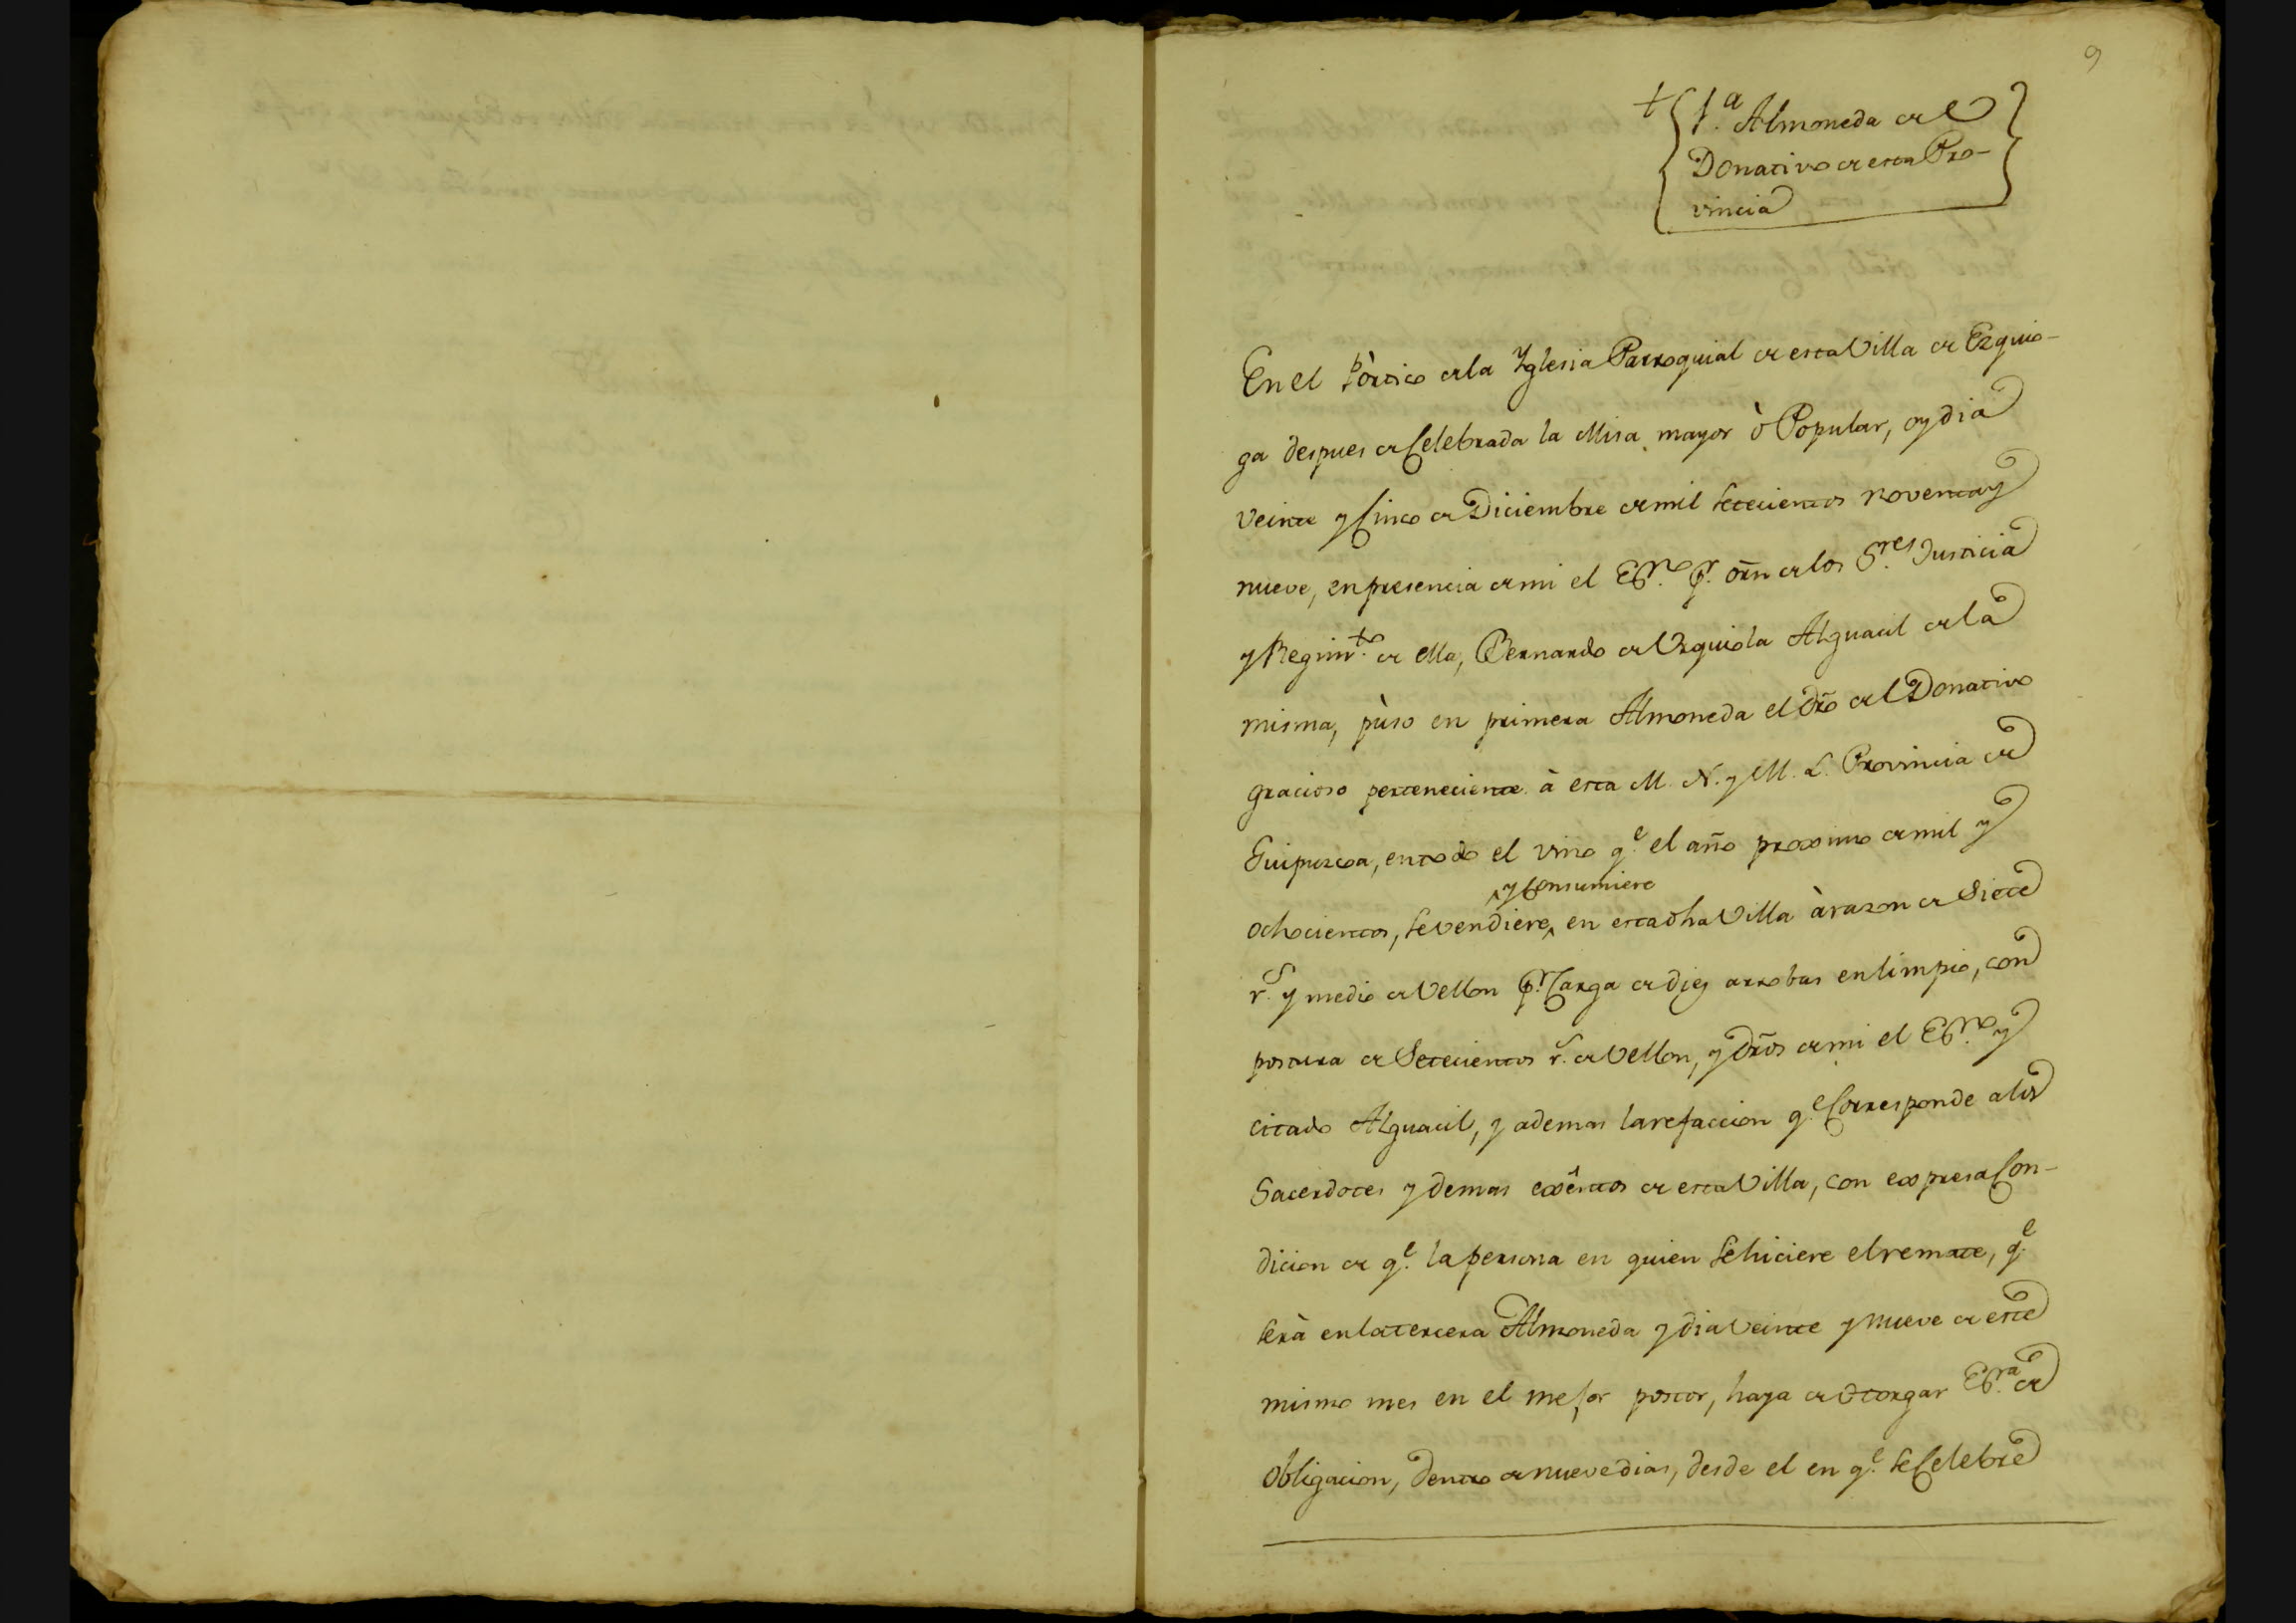 9
+ 1.ª Almoneda del
Donativo de esta Pro-
vincia
En el Pòrtico de la Yglesia Parroquial de esta Villa de Ezquio-
ga despues de Celebrada la Misa mayor ò Popular, oy dia
veinte y Cinco de Diciembre de mil setecientos noventa y
nueve, en presencia de mi el Es.no p.r orñ de los S.res Justicia
y Regim.to de ella, Bernardo de Urquiola Alguacil de la
misma, pùso en primera Almoneda el dr̃o del Donativo
gracioso perteneciente à esta M. N. y M. L. Provincia de
Guipuzcoa, en todo el vino q.e el año proximo de mil y
ochocientos, se vendiere ^y Consumiere en esta dha Villa à razon de Siete
r.s y medio de Vellon p.r Carga de diez arrobas en limpio, con
postura de Setecientos r.s de Vellon, y dr̃os de mi el Es.no y
citado Alguacil, y ademas la refaccion q.e Corresponde a los
Sacerdotes y demas exêntos de esta Villa, con expresa Con-
dicion de q.e la persona en quien se hiciere el remate, q.e
serà en la tercera Almoneda y dia veinte y nueve de este
mismo mes en el mejor postor, haya de otorgar Es.ra de
obligacion, dentro de nueve dias, desde el en q.e se Celebre